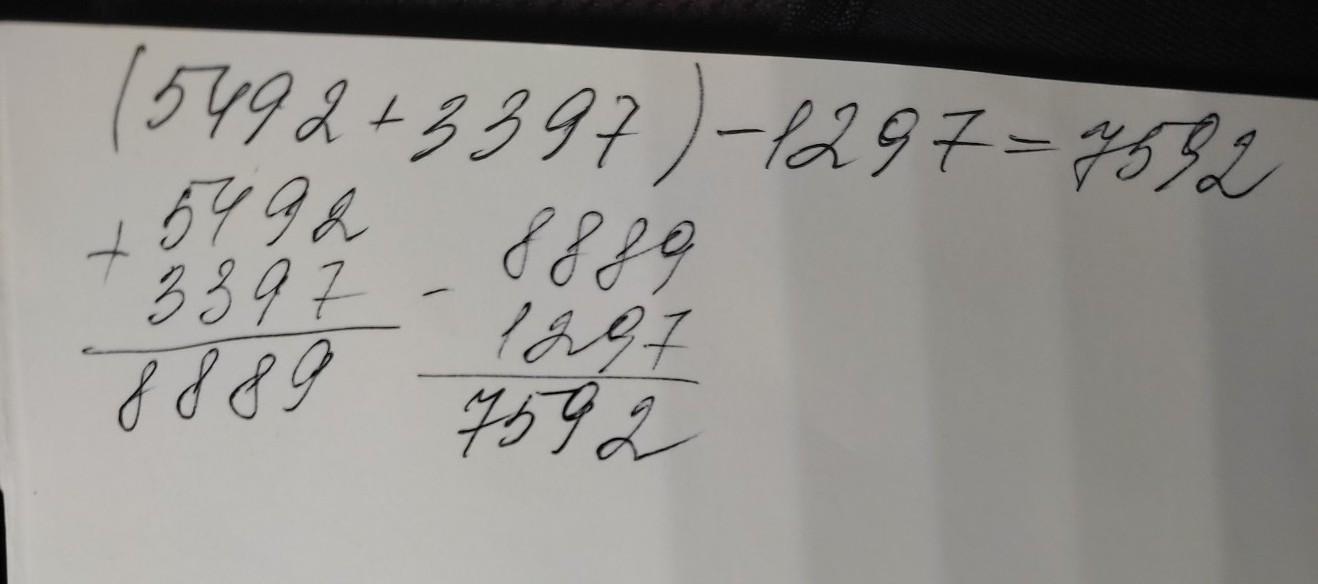 (5492+3397)-1297=7592
+ 5492
3397
8889
- 8889
1297
7592